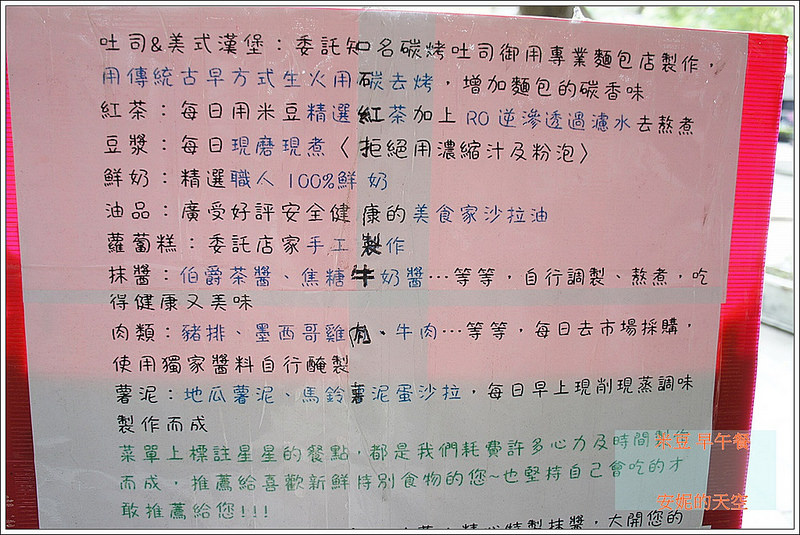 吐司&美式漢堡：委託知名碳烤吐司御用專業麵包店製作，
用傳統古早方式生火用碳去烤，增加麵包的碳香味
紅茶：每日用米豆精選紅茶加上 RO 逆滲透過濾水去熬煮
豆漿：每日現磨現煮〈拒絕用濃縮汁及粉泡〉
鮮奶：精選職人 100%鮮奶
油品：廣受好評安全健康的美食家沙拉油
蘿蔔糕：委託店家手工製作
抹醬：伯爵茶醬、焦糖牛奶醬…等等，自行調製、熬煮，吃
得健康又美味
肉類：豬排、墨西哥雞肉、牛肉…等等，每日去市場採購，
使用獨家醬料自行醃製
薯泥：地瓜薯泥、馬鈴薯泥蛋沙拉，每日早上現削現蒸調味
製作而成
菜單上標註星星的餐點，都是我們耗費許多心力及時間製作
而成，推薦給喜歡新鮮特別食物的您~也堅持自己會吃的才
敢推薦給您!!!
精心特製抹醬，大開您的
米豆 早午餐
安妮的天空